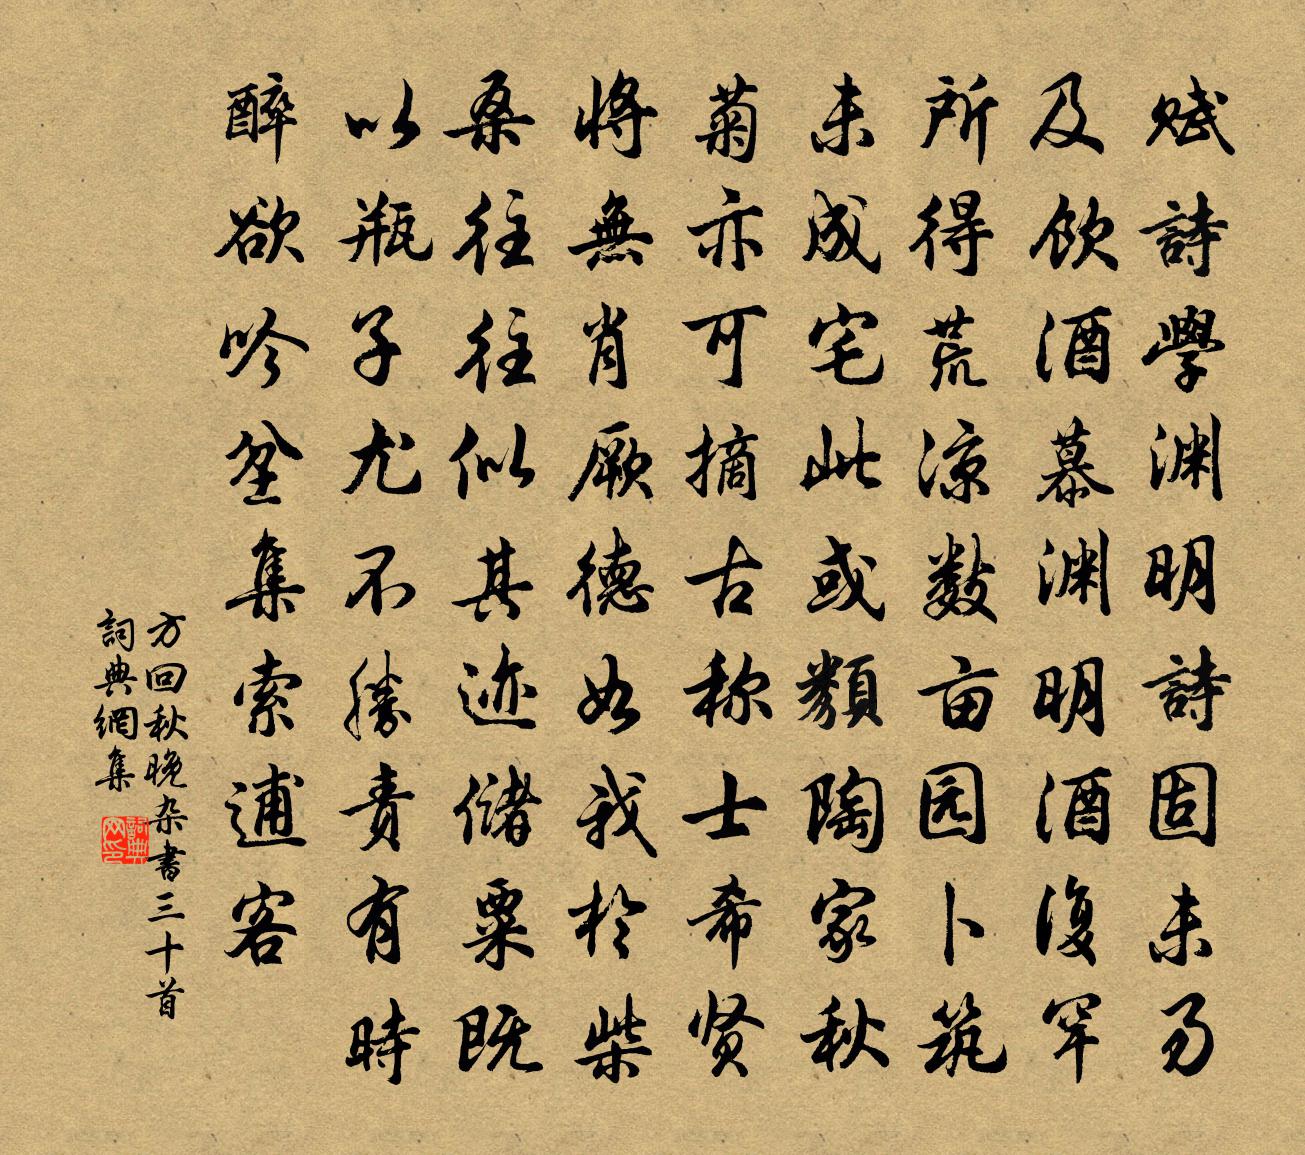 賦詩學渊明詩固未易
及飲酒慕渊明酒復罕
所得荒凉數亩园卜筑
未成宅此或類陶家秋
菊亦可摘古称士希贤
將無肖厥德如我於柴
桑往往似其迹儲粟既
以瓶子尤不勝责有時
醉欲吟坌集索逋客
方回秋晚杂書三十首
詞典網集
詞典网印